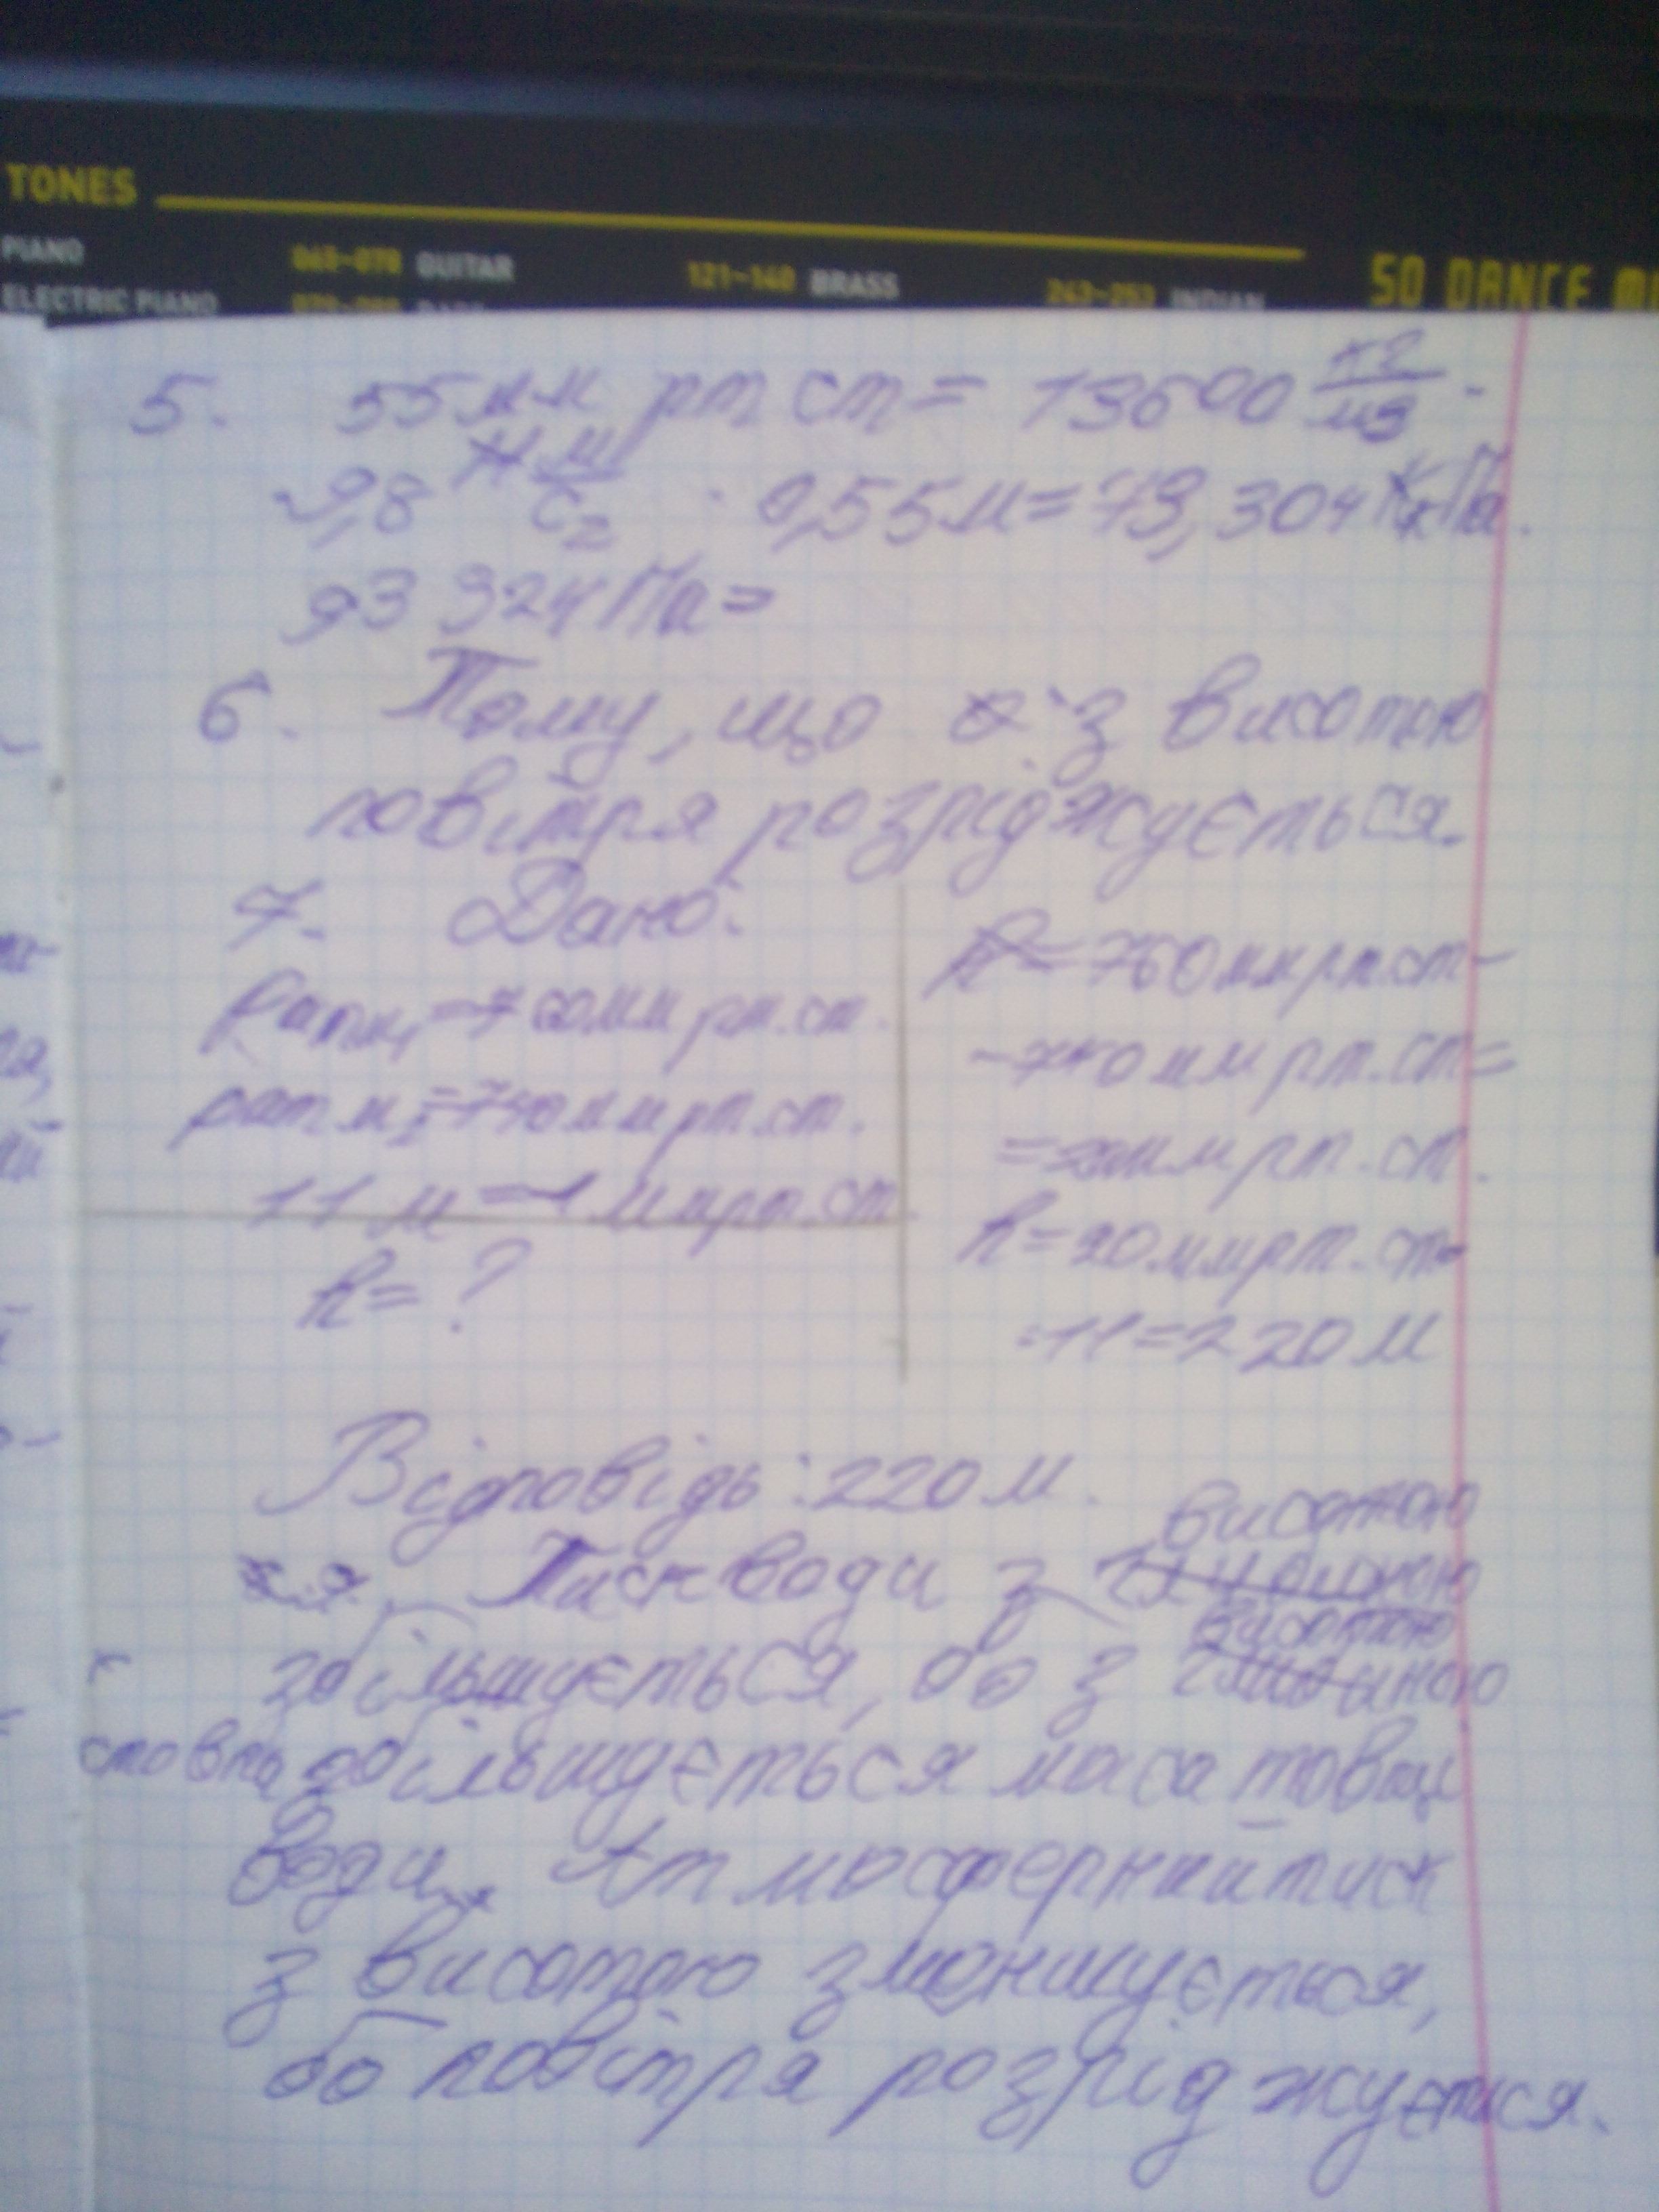 TONES
PIANO
ELECTRIC PIANO
061-070 GUITAR
121-140 BRASS
243-253 INDIAN
50 DANCE
5. 55 мм рт ст = 13600 кг/м3 ·
9,8 м/с2 · 0,55м = 73,304 кПа.
93 324 Па =
6. Тому, що з висотою
повітря розріджується.
7. Дано:
Pатм1 = 760мм рт.ст.
Pатм2 = 740мм рт.ст.
11 м – 1 мм рт.ст
h = ?
= 760 мм рт.ст –
– 740 мм рт.ст =
= 20мм рт.ст.
h = 20 мм рт.ст
·11 = 220 м
Відповідь: 220 м.
висотою
Тиск води з
висотою
збільшується, бо з
стовпа збільшується маса товщі
води. Атмосферний тиск
з висотою зменшується,
бо повітря розріджується.